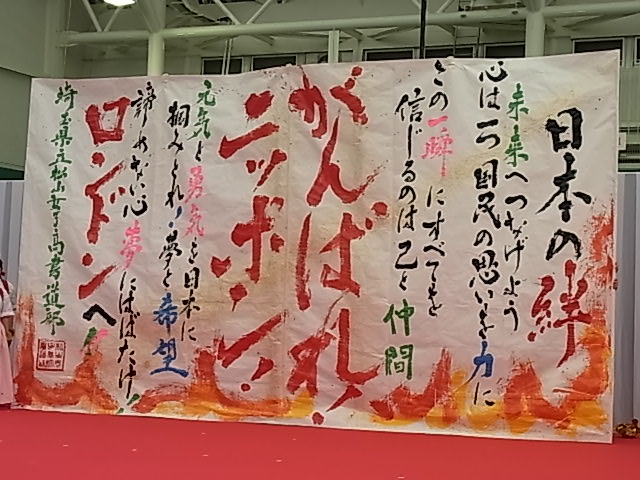 日本の絆
未来へつなげよう
心は一つ国民の思いを力に
この一瞬にすべてを
信じるのは己と仲間
がんばれ!
ニッポン!
元気と勇気を日本に
掴みとれ!夢と希望
諦めない心夢にはばたけ!!
ロンドンへ!!
埼玉県立松山女子高書道部